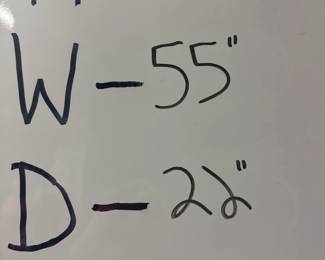 W - 55"
D - 22"